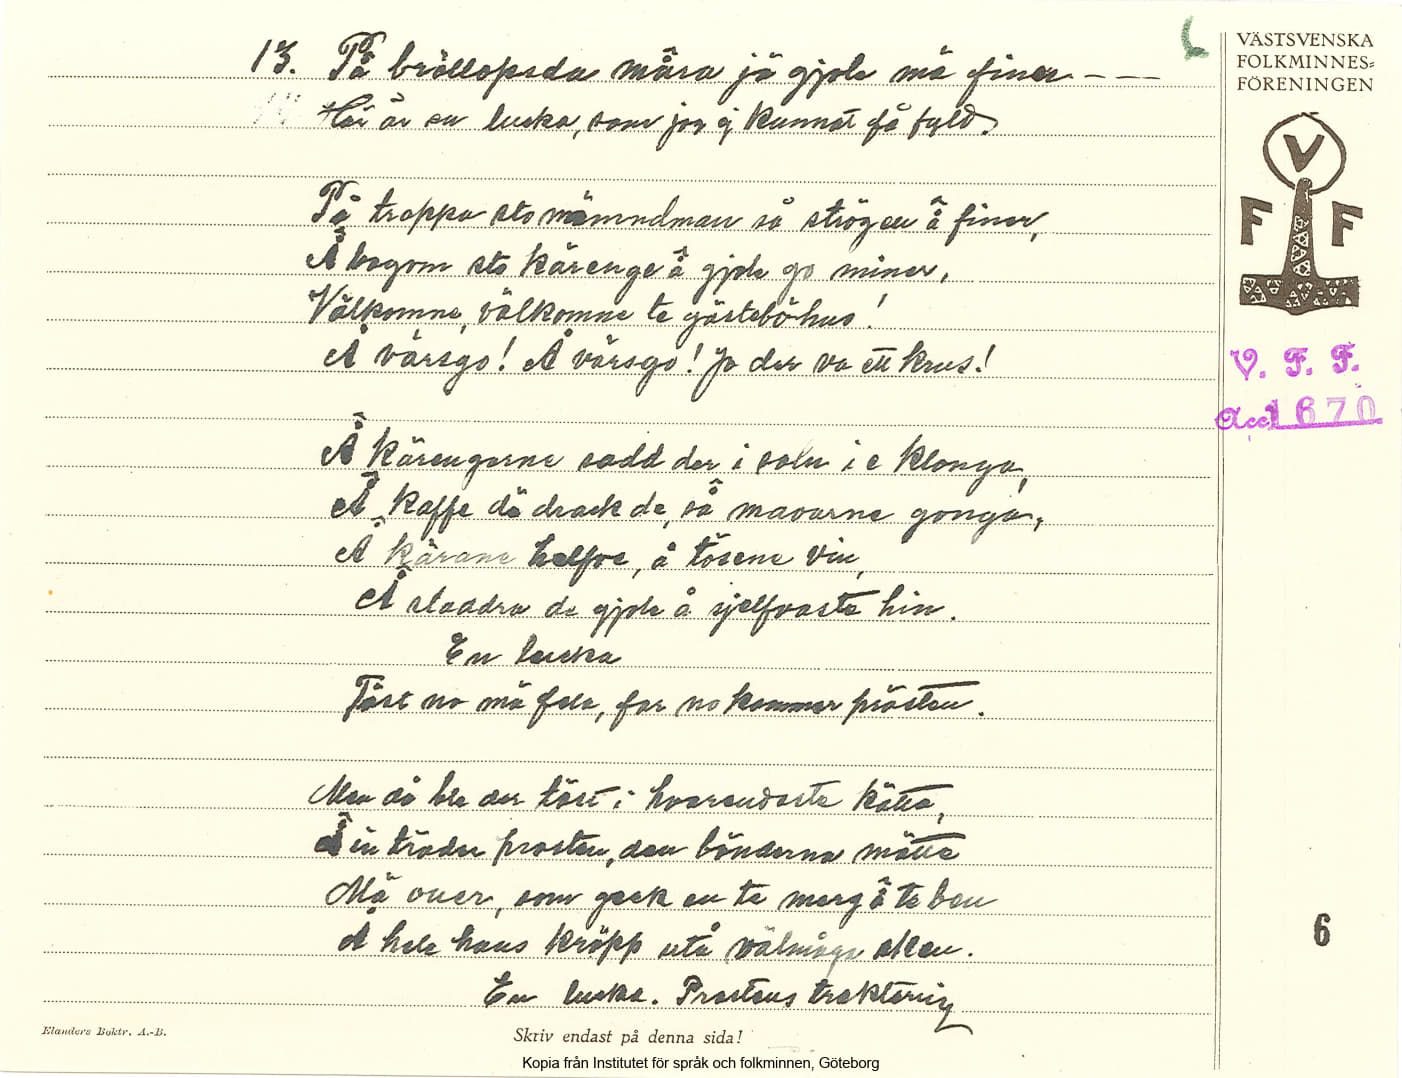 13. På bröllopsda måra jä gjole mä finer - - -
Här är en lucka, som jag ej kunnat få fyld.
På trappa sto nämndman så strögen å finer,
Å bagom sto kärenge å gjole go miner,
Välkomne, välkomne te gästeböhus!
Å vårsgo! Å vårsgo! Ja der va ett krus!
Å kärengerne sadd der i solu i e klonga,
Å kaffe dä drack de, så mavarne gonga,
Å kärane halfve, å tösene vin,
Å sladdra de gjole å sjelfvaste hin.
En lucka
Tåst no mä fela, for no kommer prästen.
Men då ble der tåst i hvarendaste kätta,
Å in träder prosten, den bönderna mätta
Mä over, som geck en te merg å te ben
Å hela hans kröpp utå välmåga sken.
En lucka. Prostens traktering
VÄSTSVENSKA
FOLKMINNES=
FÖRENINGEN
V
F F
V. F. F.
Acc 1670
6
Elanders Boktr. A.-B.
Skriv endast på denna sida!
Kopia från Institutet för språk och folkminnen, Göteborg